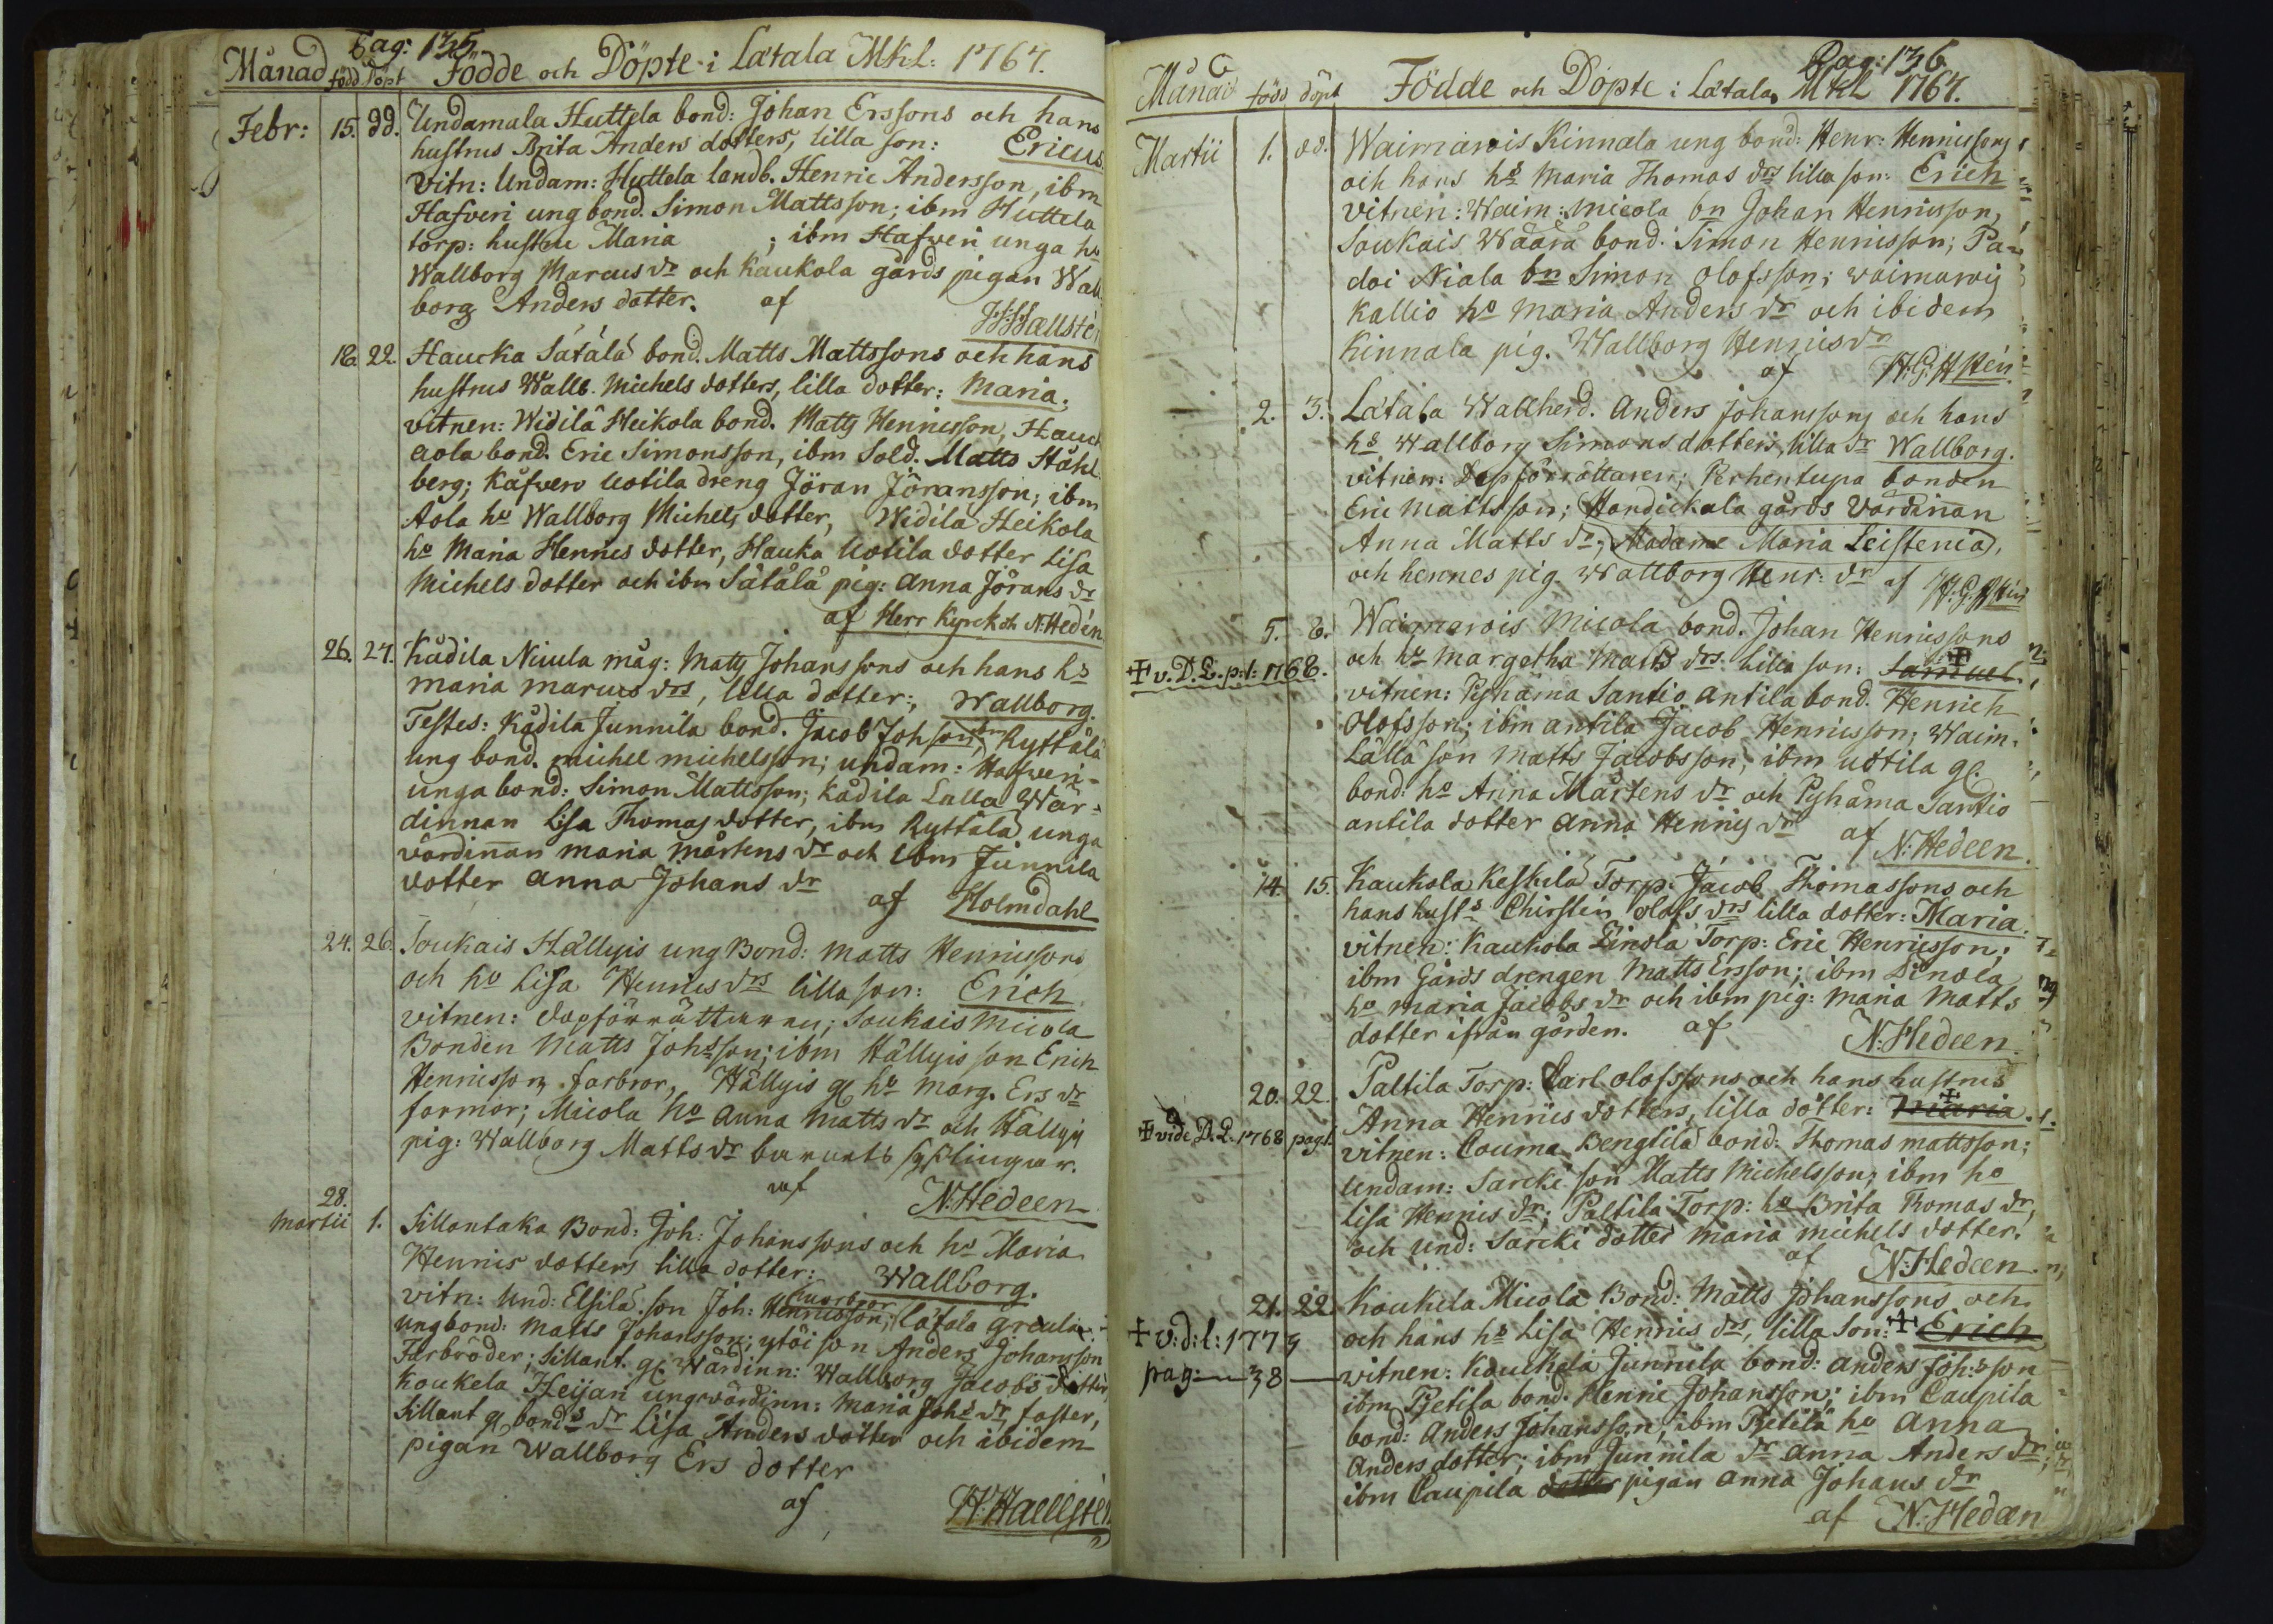 Pag: 135.
Månad född Döpt Födde och Döpte i Låtala Mkl: 1767.
Febr: 15. dd. Undamala Huttela bond: Johan Erssons och hans
hustrus Brita Anders dotters, lilla son: Ericus.
Vitn: Undam: Huttela landb. Henric Andersson, ibm
Hafveri ung bond. Simon Mattsson; ibm Huttela
torp: hustru Maria ; ibm Hafveri unga ho
Wallborg Marcus dr och Kaukola gårds pigan Wall
borg Anders dotter. af
Hällsté
18. 22. Haucka Sätälä bond. Matts Mattssons och hans
hustrus Wallb. Michels dotters, lilla dotter: Maria.
vitnen: Widilä Heikola bond. Matts Henricsson, Hauck
Aola bond. Eric Simonsson, ibm Sold. Matts Ståhl
berg; Kåfvero Uotila dreng Jöran Jöransson; ibm
Aola ho Wallborg Michels dotter, Widila Heikola
ho Maria Henrics dotter, Hauka Uotila dotter Lisa
Michels dotter och ibm Sätälä pig: Anna Jörans dr
af Herr Kyrckoh. N. Hedén
26. 27. Kådila Niuula måg: Matts Johanssons och hans hs
Maria Marcus drs, lilla dotter: Wallborg.
Testes: Kådila Junnila bond. Jacob Johsson, ibm Ryttälä
ung bond. Michel Michelsson; undam: Hafveri-
unga bond: Simon Mattsson; Kådila Lalla Wär-
dinnan Lisa Thomas dotter, ibm Ryttälä unga
värdinnan Maria Mårtens dr och ibm Junnila
dotter Anna Johans dr
af Holmdahl
24. 26. Soukais Hällyis ung Bond: Matts Henricssons
och ho Lisa Henrics drs lilla son: Erich
vitnen: dopförrättaren; Soukais Micola
Bonden Matts Johsson; ibm Hällyis son Erich
Henricsson farbror, Hällyis gl ho Marg. Ers dr
farmor; Micola ho Anna Matts dr och Hällyis
pig: Wallborg Matts dr barnets sysslingar.
af
N: Hedeen
28.
Martii 1. Sillantaka Bond: Joh: Johanssons och ho Maria
Henrics dotters lilla dotter: Wallborg.
morbror
vitn: Und: Elsilä son Joh: Henricsson; Låtala Greula
ungbond: Matts Johansson; ytöi son Anders Johansson
Farbröder; Sillant. gl Wärdinn: Wallborg Jacobs dotter
Koukela Heijari ungvärdinn: Maria Johs dr faster,
Sillant gl bonds dr Lisa Anders dotter och ibidem
pigan Wallborg Ers dotter
af H: Haellstén
Pag: 136
Månad född döpt Födde och Döpte i Låtala Mkl 1767.
Martii 1. dd. Waimarois Kinnala ung bond: Henr: Henricssons
och hans hs Maria Thomas drs lilla son: Erich
vitnen: Waim: Micola bn Johan Henricsson,
Soukais Waara bond: Simon Henricsson; Pa-
doi Niala bn Simon Olofsson; Waimarois
Kallio ho Maria Anders dr och ibidem
Kinnala pig. Wallborg Henrics dr
af H: G: Hstén.
2. 3. Låtala Wallherd. Anders Johanssons och hans
hs Wallborg Simons dotters lilla dr Wallborg.
vitnen: Dopförrättaren; Perhentupa bonden
Eric Mattsson; Handickala gårds Värdinnan
Anna Matts dr; Madame Maria Leistenia,
och hennes pig. Wallborg Henr: dr af H: G. Hstén
5. 6. Waimarois Micola bond. Johan Henricssons
och hs Margetha Matts drs lilla son: Samuel.
v. D. L. p: 1: 1768.
vitnen: Pyhäma Santio Antila bond. Henrich
Olofsson; ibm Antila Jacob Henricsson; Waim.
Lällä son Matts Jacobsson; ibm Uotila gl.
bond: ho Anna Mårtens dr och Pyhäma Santio
Antila dotter Anna Henrics dr
af N: Hedeen.
14. 15. Kaukola Keskilä Torp: Jacob Thomassons och
hans husts Chirstin Olofs drs lilla dotter: Maria.
vitnen: Kaukola Linola Torp: Eric Henricsson;
ibm Gårds drengen Matts Ersson; ibm Linola
ho Maria Jacobs dr och ibm pig: Maria Matts
dotter ifrån gården. af
N: Hedeen.
20. 22. Paltila Torp: Carl Olofssons och hans hustrus
Anna Henrics dotters, lilla dotter: Maria.
vide D. L. 1768 pag 1.
vitnen: Couma Bengtilä bond: Thomas Mattsson;
Undam: Sarcki son Matts Michelsson; ibm ho
Lisa Henrics dr; Paltila Torp: ho Brita Thomas dr,
och Und: Sarcki dotter Maria Michels dotter.
af N: Hedeen.
21. 22. Koukela Micola Bond: Matts Johanssons och
v: d: l: 1779 och hans hs Lisa Henrics drs, lilla Son: Erich
pag: 38 vitnen: Koukela Junnila bond: Anders Johsson
ibm Pjetila bond. Henric Johansson; ibm Caupila
bond: Anders Johansson, ibm Pjetilä ho Anna
Anders dotter; ibm Junnila dr Anna Anders dr;
ibm Caupila dotter pigan Anna Johans dr
af N: Hedæn